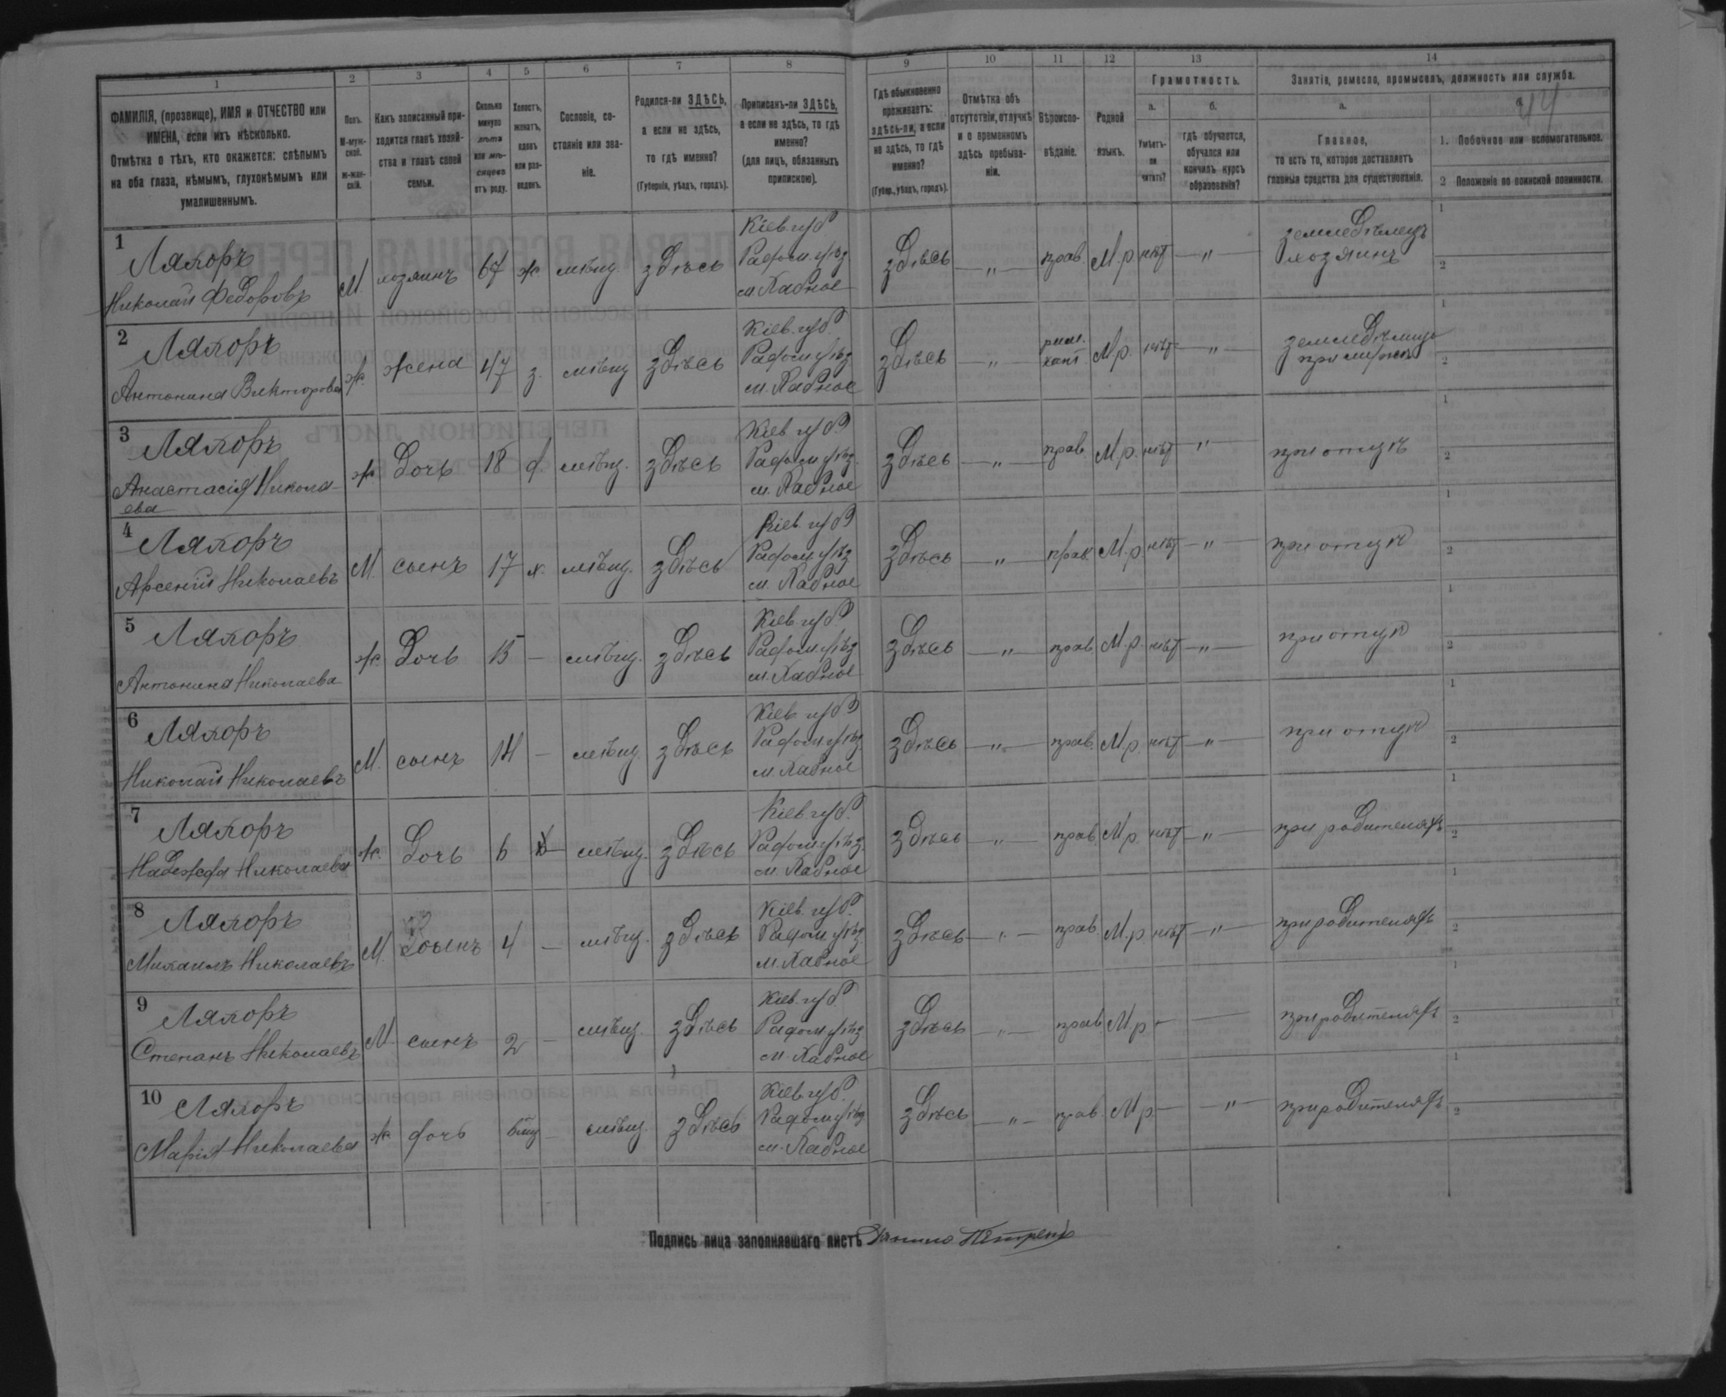 1 2 3 4 5 6 7 8 9 10 11 12 13 14
ФАМИЛІЯ, (прозвище), ИМЯ и ОТЧЕСТВО или
ИМЕНА, если ихъ нѣсколько.
Отмѣтка о тѣхъ, кто окажется: слѣпымъ
на оба глаза, нѣмымъ, глухонѣмымъ или
умалишеннымъ.
Полъ.
М-муж-
ской.
ж-жен-
скій.
Какъ записанный при-
ходится главѣ хозяй-
ства и главѣ своей
семьи.
Сколько
минуло
лѣтъ
или мѣ-
сяцевъ
отъ роду.
Холостъ,
женатъ,
вдовъ
или раз-
веденъ.
Сословіе, со-
стояніе или зва-
ніе.
Родился-ли ЗДѢСЬ,
а если не здѣсь,
то гдѣ именно?
(Губернія, уѣздъ, городъ).
Приписанъ-ли ЗДѢСЬ,
а если не здѣсь, то гдѣ
именно?
(для лицъ, обязанныхъ
припискою).
Гдѣ обыкновенно
проживаетъ:
здѣсь-ли, а если
не здѣсь, то гдѣ
именно?
(Губер., уѣздъ, городъ).
Отмѣтка объ
отсутствіи, отлучкѣ
и о временномъ
здѣсь пребыва-
ніи.
Вѣроиспо-
вѣданіе.
Родной
языкъ.
Грамотность.
а.
Умѣетъ-
ли
читать?
б.
гдѣ обучается,
обучался или
кончилъ курсъ
образованія?
Занятія, ремесло, промыселъ, должность или служба.
а.
Главное,
то есть то, которое доставляетъ
главныя средства для существованія.
44
1. Побочное или вспомогательное.
2 Положеніе по воинской повинности.
1
Ляхоръ
Николай Федоровъ
М. хозяинъ 67 ж мѣщ здѣсь
Кіев губ
Радом уѣз
м. Хабное
здѣсь — „ — прав М.р. нѣт — „ —
земледѣлецъ
хозяинъ
1
2
2
Ляхоръ
Антонина Викторова
ж. жена 47 з. мѣщ здѣсь
Кіев. губ.
Радом уѣз
м. Хабное
здѣсь „
рим.
кат
М.р. нѣт „
1
2
3
Ляхоръ
Анастасія Никола-
ева
ж Дочь 18 д мѣщ. здѣсь
Кіев губ
Радом уѣз.
м. Хабное
здѣсь — „ — прав М.р. нѣт „
при отцѣ
1
2
4
Ляхоръ
Арсеній Николаевъ
М. сынъ 17 х. мѣщ. здѣсь
Кіев губ
Радом уѣз
м. Хабное
здѣсь „ прав М.р нѣт — „ —
при отцѣ
1
2
5
Ляхоръ
Антонина Николаева
ж Дочь 15 — мѣщ. здѣсь
Кіев губ
Радом уѣз
м. Хабное
здѣсь — „ прав М.р. нѣт — „ —
при отцѣ
1
2
6
Ляхоръ
Николай Николаевъ
М. сынъ 14 — мѣщ. здѣсь
Кіев губ
Радом уѣз
м Хабное
здѣсь — „ — прав. М.р. нѣт — „ —
при отцѣ
1
2
7
Ляхоръ
Надежда Николаева
ж. Дочь 6 — мѣщ. здѣсь
Кіев губ.
Радом уѣз
м. Хабное
здѣсь „ прав М.р нѣт — „ —
при родителях
1
2
8
Ляхоръ
Михаилъ Николаевъ
М. сынъ 4 — мѣщ. здѣсь
Кіев губ.
Радом уѣз
м. Хабное
здѣсь — „ — прав М.р нѣт — „ —
при родителях
1
2
9
Ляхоръ
Степанъ Николаевъ
М сынъ 2 — мѣщ. здѣсь
Кіев. губ
Радом уѣз
м. Хабное
здѣсь „ — прав М.р — —
при родителях
1
2
10
Ляхоръ
Марія Николаева
ж дочь — мѣщ. здѣсь
Кіев губ.
Радом уѣз
м. Хабное
здѣсь — „ — прав. М.р. — — „ —
при родителях
1
2
Подпись лица заполнявшаго листъ